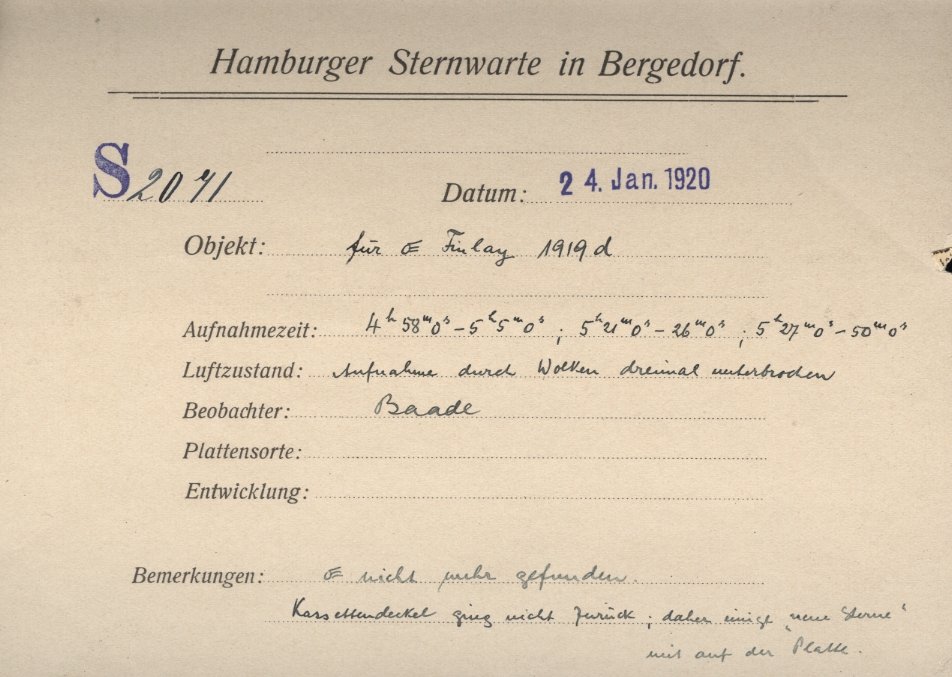 Hamburger Sternwarte in Bergedorf.
S 2071 Datum: 24. Jan. 1920
Objekt: für ☄ Finlay 1919 d
Aufnahmezeit: 4ʰ 58ᵐ 0ˢ – 5ʰ 5ᵐ 0ˢ ; 5ʰ 21ᵐ 0ˢ – 26ᵐ 0ˢ ; 5ʰ 27ᵐ 0ˢ – 50ᵐ 0ˢ
Luftzustand: Aufnahme durch Wolken dreimal unterbrochen
Beobachter: Baade
Plattensorte:
Entwicklung:
Bemerkungen: ☄ nicht mehr gefunden.
Kassettendeckel ging nicht zurück; daher einige „neue Sterne“
mit auf der Platte.